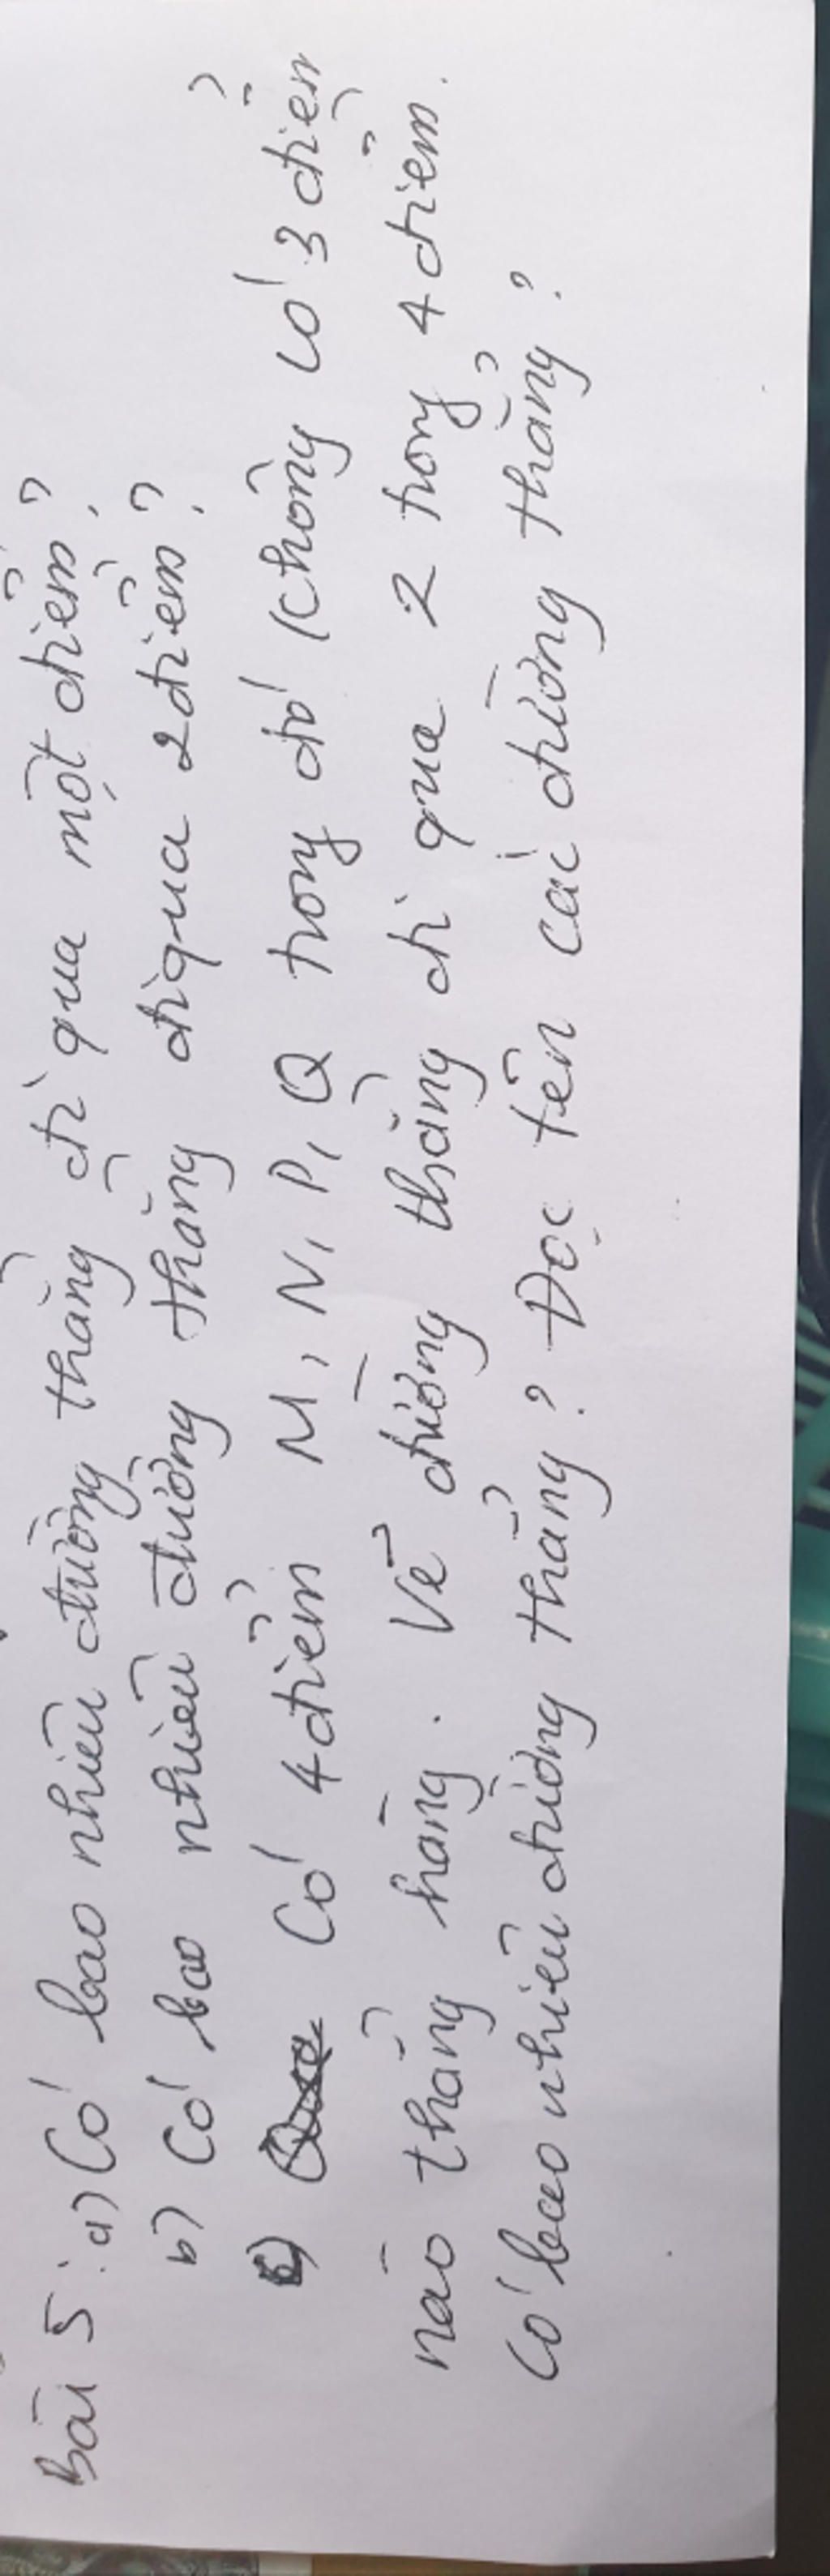 Bài 5: a) Có bao nhiêu đường thẳng đi qua một điểm?
b) Có bao nhiêu đường thẳng đi qua 2 điểm?
c) Có 4 điểm M, N, P, Q trong đó không có 3 điểm
nào thẳng hàng. Vẽ đường thẳng đi qua 2 trong 4 điểm.
Có bao nhiêu đường thẳng? Đọc tên các đường thẳng?